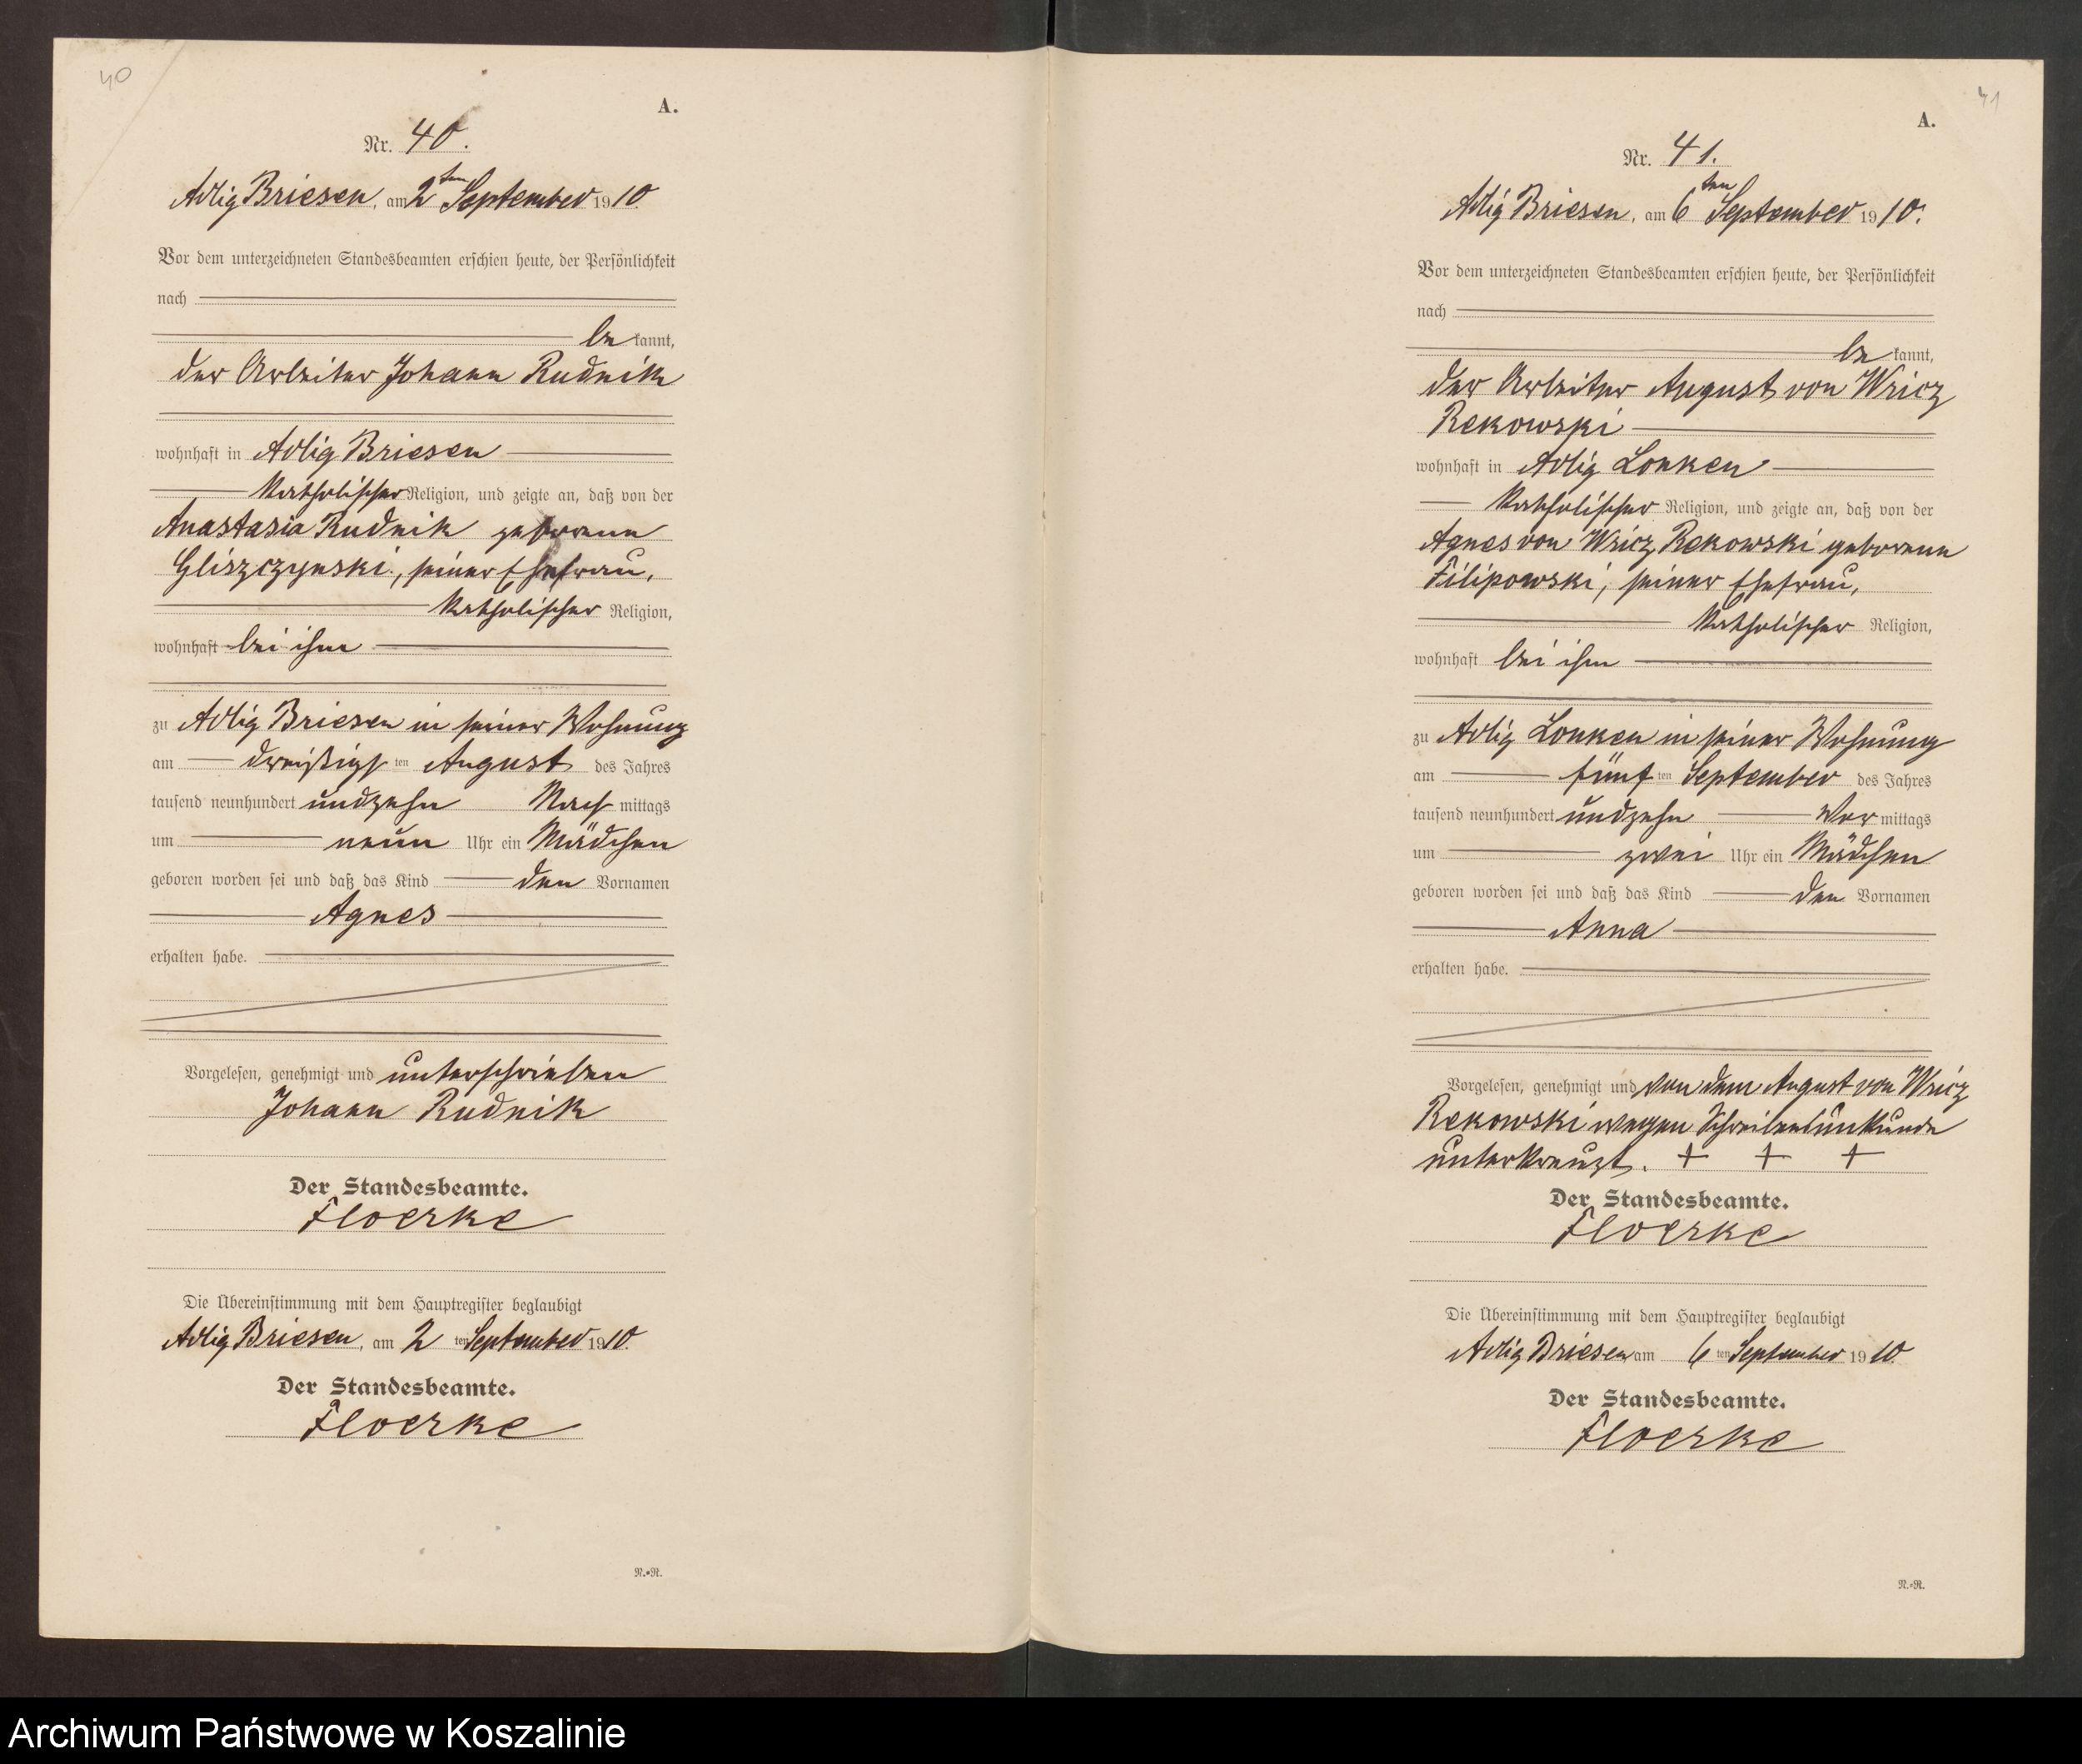 40
A.
Nr. 40.
Adlig Briesen, am 2ten September 1910.
Vor dem unterzeichneten Standesbeamten erschien heute, der Persönlichkeit
nach
be kannt,
der Arbeiter Johann Rudnik
wohnhaft in Adlig Briesen
katholischer Religion, und zeigte an, daß von der
Anastasia Rudnik geborene
Gliszczynski, seiner Ehefrau,
katholischer Religion,
wohnhaft bei ihm
zu Adlig Briesen in seiner Wohnung
am dreißigs ten August des Jahres
tausend neunhundert undzehn Nach mittags
um neun Uhr ein Mädchen
geboren worden sei und daß das Kind den Vornamen
Agnes
erhalten habe.
Vorgelesen, genehmigt und unterschrieben
Johann Rudnik
Der Standesbeamte.
Floerke
Die Übereinstimmung mit dem Hauptregister beglaubigt
Adlig Briesen, am 2 ten September 1910.
Der Standesbeamte.
Floerke
N.=R.
41
A.
Nr. 41.
Adlig Briesen, am 6ten September 1910.
Vor dem unterzeichneten Standesbeamten erschien heute, der Persönlichkeit
nach
be kannt,
der Arbeiter August von Wricz
Rekowski
wohnhaft in Adlig Lonken
katholischer Religion, und zeigte an, daß von der
Agnes von Wricz Rekowski geborene
Filipowski, seiner Ehefrau,
katholischer Religion,
wohnhaft bei ihm
zu Adlig Lonken in seiner Wohnung
am fünf ten September des Jahres
tausend neunhundert undzehn Vor mittags
um zwei Uhr ein Mädchen
geboren worden sei und daß das Kind den Vornamen
Anna
erhalten habe.
Vorgelesen, genehmigt und von dem August von Wricz
Rekowski wegen Schreibensunkunde
unterkreuzt. + + +
Der Standesbeamte.
Floerke
Die Übereinstimmung mit dem Hauptregister beglaubigt
Adlig Briesen am 6 ten September 1910.
Der Standesbeamte.
Floerke
N.=R.
Archiwum Państwowe w Koszalinie